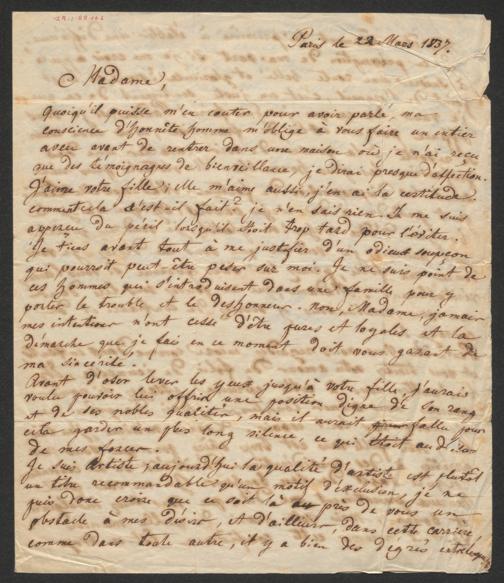 Paris le 22 Mars 1837.
Madame,
Quoiqu'il puisse m'en couter pour avoir parlé, ma
conscience d'honnête homme m'oblige à vous faire un entier
aveu avant de rentrer dans une maison où je n'ai reçu
que des témoignages de bienveillance, je dirai presque d'affection.
J'aime votre fille; elle m'aime aussi, j'en ai la certitude.
comment cela s'est-il fait? je n'en sais rien. Je me suis
apperçu du péril lorsqu'il étoit trop tard pour l'éviter.
Je tiens avant tout à me justifier d'un odieux soupçon
qui pourroit peut-être peser sur moi. Je ne suis point de
ces hommes qui s'introduisent dans une famille pour y
porter le trouble et le deshonneur. non, Madame, jamais
mes intentions n'ont cessé d'être pures et loyales et la
démarche que je fais en ce moment doit vous garant de
ma sincérité.
Avant d'oser lever les yeux jusqu'à votre fille, j'aurais
voulu pouvoir lui offrir une position digne de son rang
et de ses nobles qualités, mais il aurait fallu pour
cela garder un plus long silence, ce qui étoit au dessus
de mes forces.
Je suis Artiste; aujourd'hui la qualité d'artiste est plutôt
un titre recommandable qu'un motif d'exclusion, je ne
puis donc croire que ce soit là auprès de vous un
obstacle à mes désirs, et d'ailleurs, dans cette carrière
comme dans toute autre, il y a bien des degrés